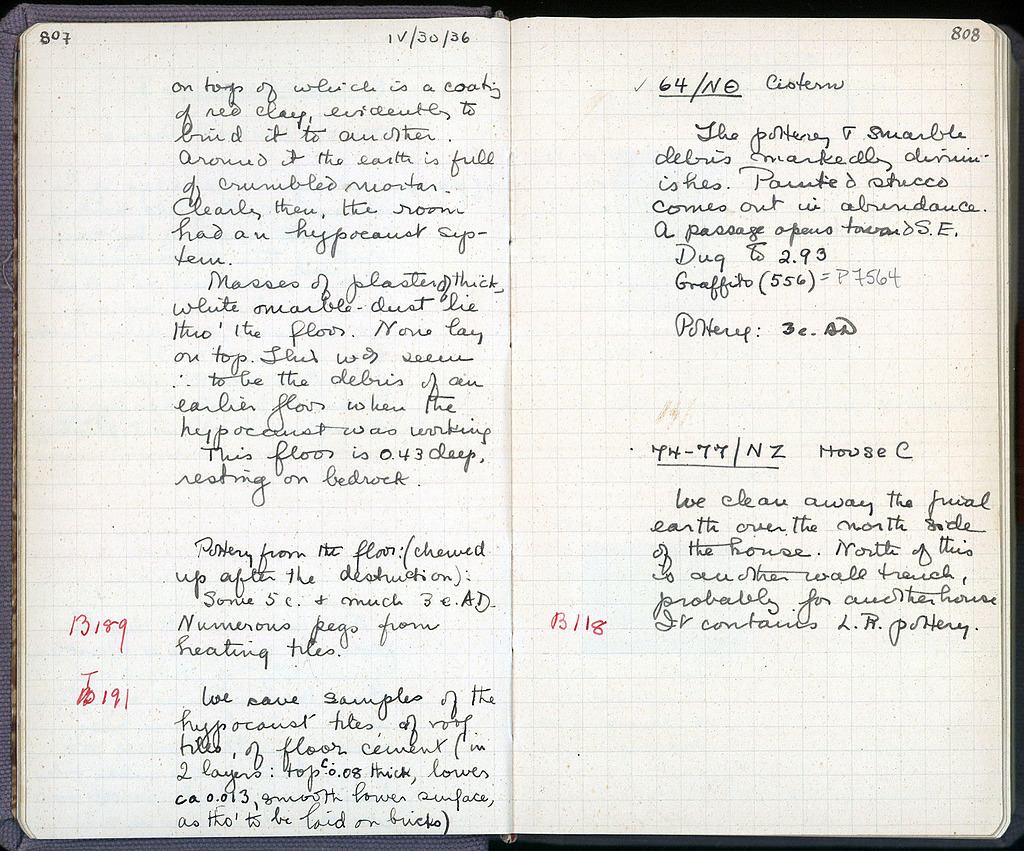 807
IV/30/36
on top of which is a coating
of red clay, evidently to
bind it to another.
Around it the earth is full
of crumbled mortar.
Clearly then, the room
had an hypocaust sys-
tem.
Masses of plaster of thick,
white marble-dust lie
thro' the floor. None lay
on top. This wd seem
∴ to be the debris of an
earlier floor when the
hypocaust was working
This floor is 0.43 deep,
resting on bedrock.
Pottery from the floor: (chewed
up after the destruction):
Some 5 c. & much 3 c. AD.
B 189
Numerous pegs from
heating tiles.
191
We save samples of the
hypocaust tiles, of roof
tiles, of floor cement (in
2 layers: top 0.08 thick, lower
ca 0.013, smooth lower surface,
as tho' to be laid on bricks)
808
✓ 64/ΝΘ Cistern
The pottery & marble
debris markedly dimin-
ishes. Painted stucco
comes out in abundance.
A passage opens toward S.E.
Dug to 2.93
Graffito (556) = P7564
Pottery: 3 c. AD
74-77/ΝΖ House C
We clean away the final
earth over the north side
of the house. North of this
is another wall trench,
probably for another house
B 118
It contains L.R. pottery.